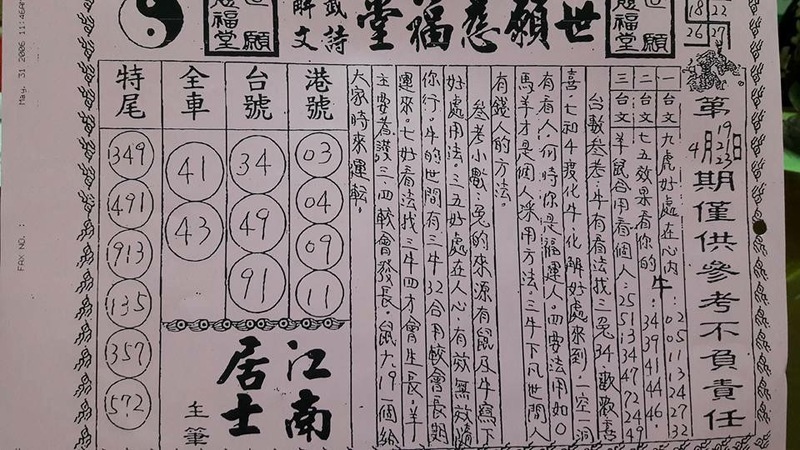 May. 31 2006 11:46AM
FAX NO. :
世願慈福堂
籤詩解文
世願
慈福堂
世願
慈福堂
18 22
26 27
第4月19 21 23日期僅供參考不負責任
一 台文 九虎好處在心內:02 05 11 13 24 27 32
二 台文 七五效果看你的牛:34 39 41 44 46
三 台文 羊鼠合用看個人:25 13 34 47 72 24 49
台數參考:牛有看法找三兔34歡歡喜
喜,七和4變化牛化解好處來到,一空一洞
有看人,何時你是福運人,四要法用如0
馬羊才是個人採用方法,三牛下凡世間人
有錢人的方法
參考小數:兔的來源有鼠及牛為下
好處用法,三五好處在人心,有效無效隨
你行,牛的世間有三牛32合用較會長期
運來,七好看法找三牛四才會生長,羊
主要者護三,四較會發長,鼠九,19一個給
大家時來運転。
港號
03
04
09
11
台號
34
49
91
全車
41
43
特尾
1349
1491
1913
135
357
572
江南居士
主筆